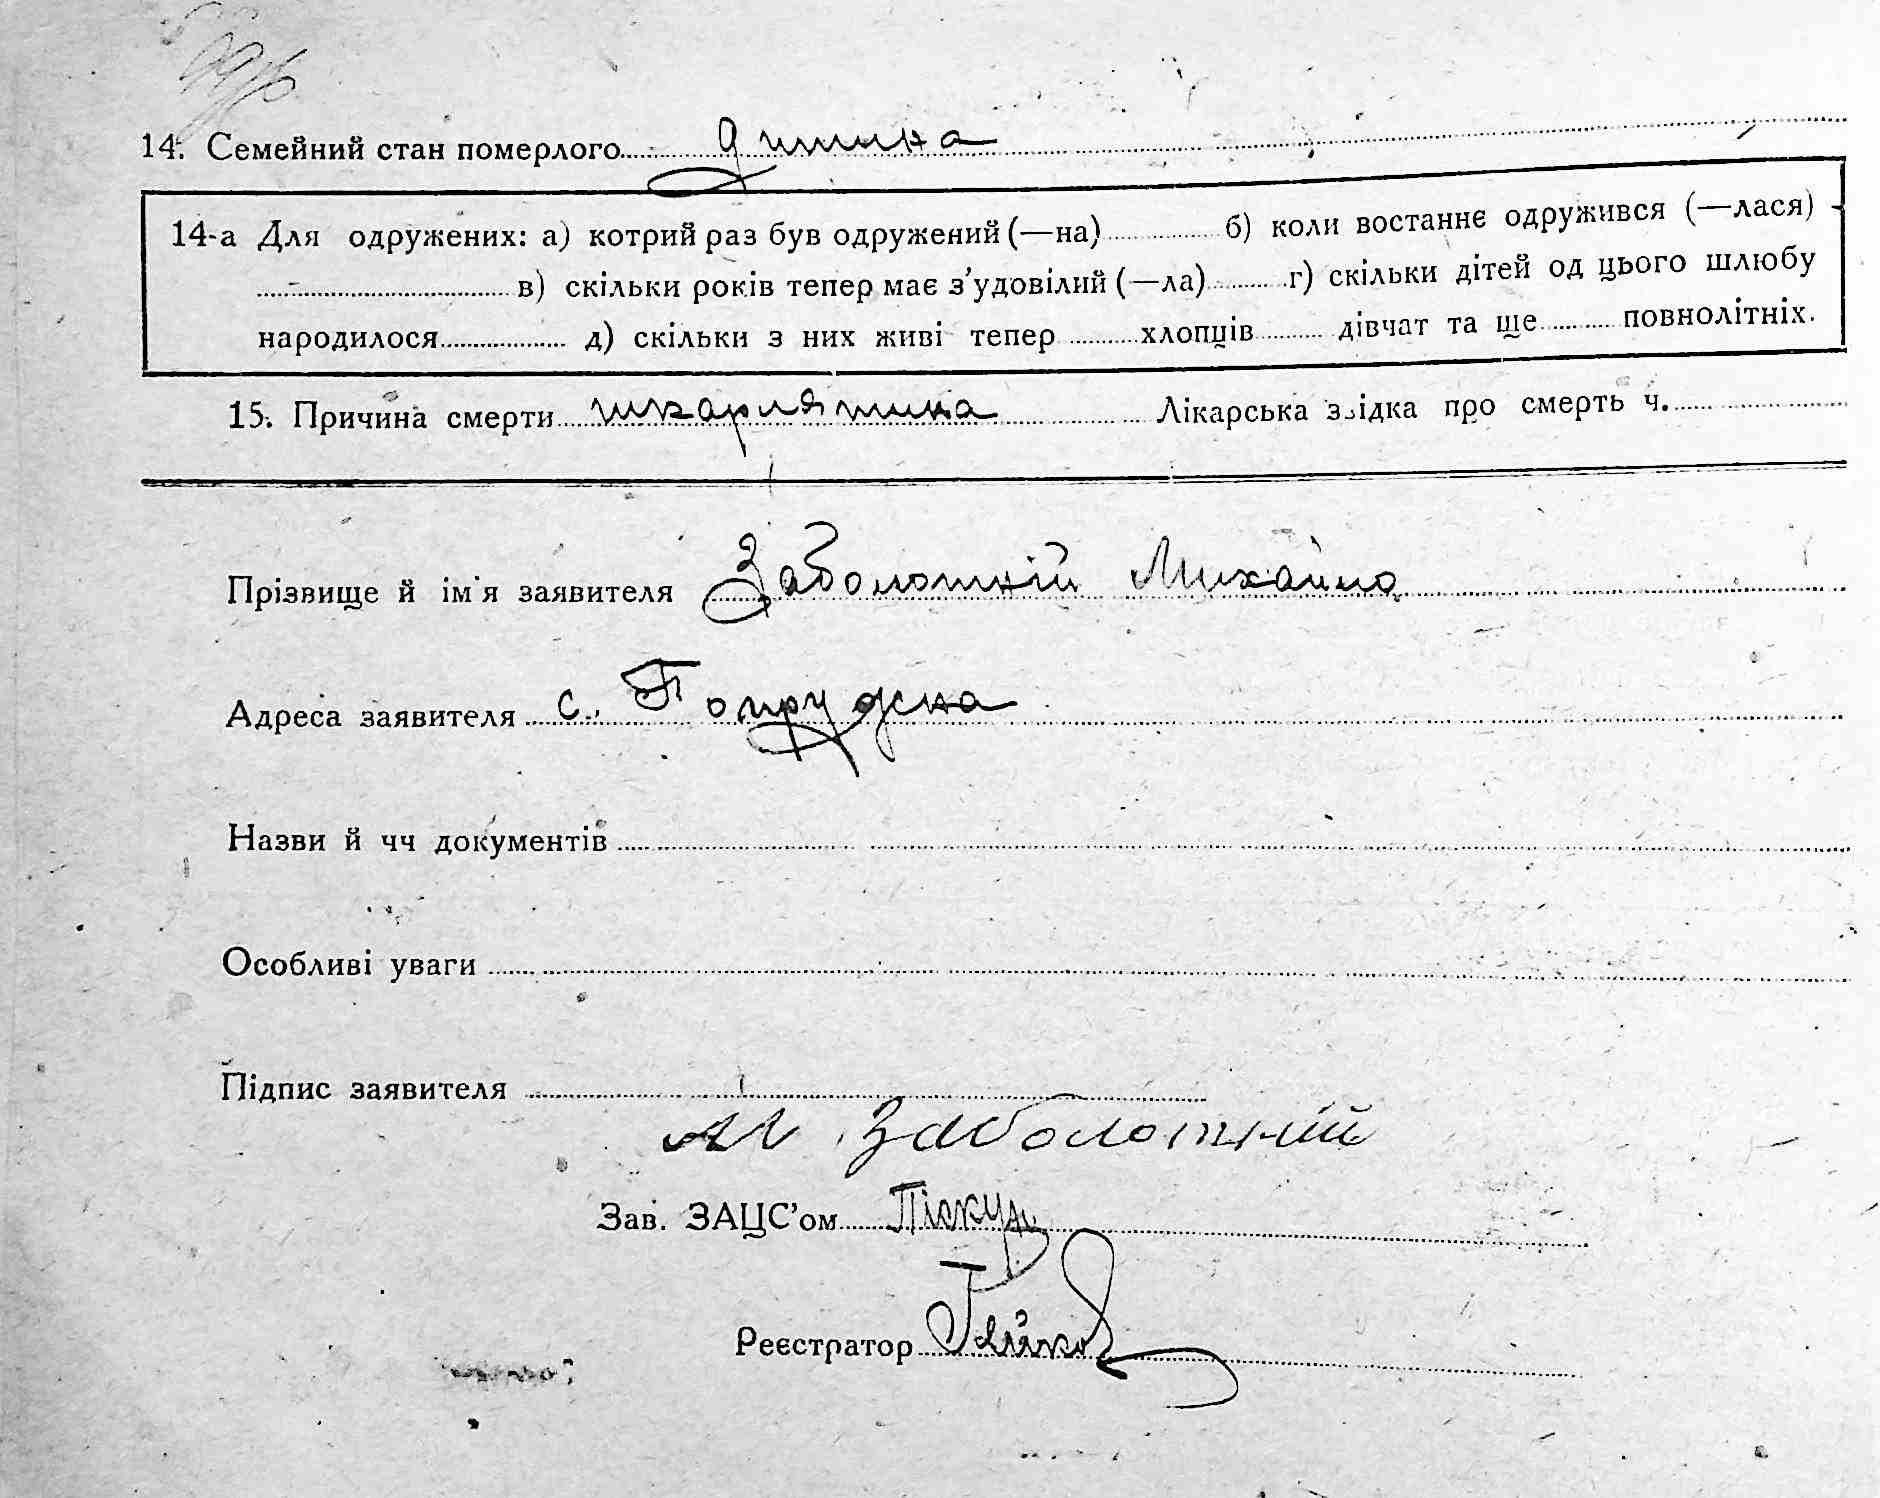 14. Семейний стан померлого дитина
14-а Для одружених: а) котрий раз був одружений (—на) б) коли востаннє одружився (—лася)
в) скільки років тепер має з’удовілий (—ла) г) скільки дітей од цього шлюбу
народилося д) скільки з них живі тепер хлопців дівчат та ще повнолітніх.
15. Причина смерти шкарлятина Лікарська звідка про смерть ч.
Прізвище й ім’я заявителя Заболотній Михайло
Адреса заявителя с. Попрудена
Назви й чч документів
Особливі уваги
Підпис заявителя
М Заболотній
Зав. ЗАЦС’ом
Реєстратор